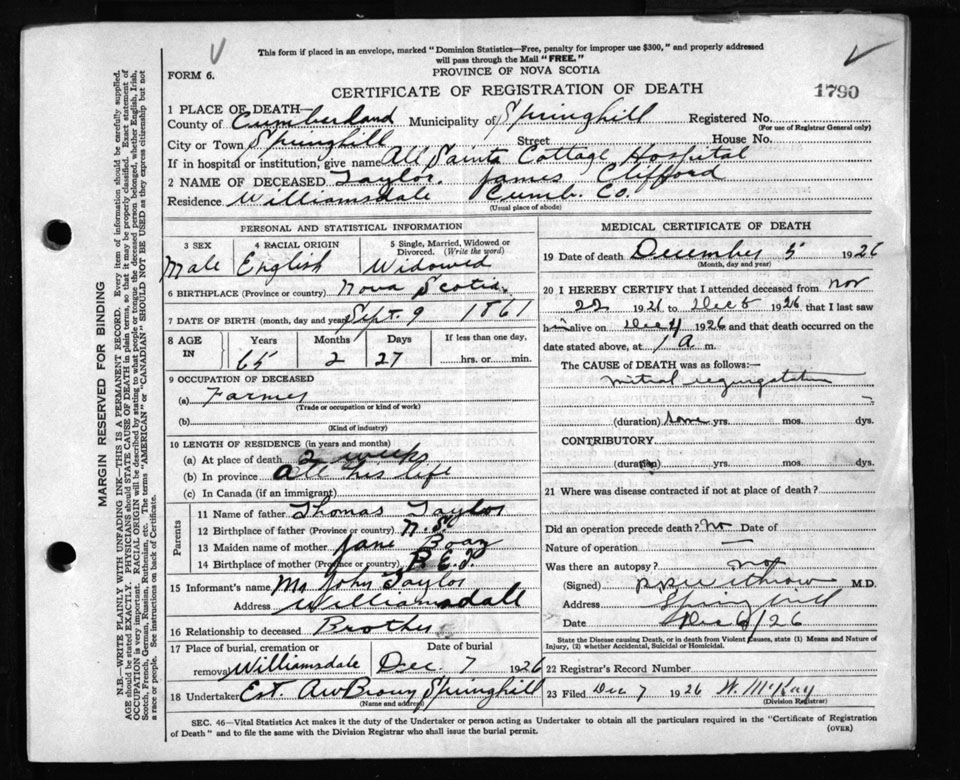 This form if placed in an envelope, marked "Dominion Statistics—Free, penalty for improper use $300," and properly addressed
will pass through the Mail "FREE."
PROVINCE OF NOVA SCOTIA
FORM 6.
CERTIFICATE OF REGISTRATION OF DEATH
1790
MARGIN RESERVED FOR BINDING
N.B.—WRITE PLAINLY WITH UNFADING INK—THIS IS A PERMANENT RECORD. Every item of information should be carefully supplied.
AGE should be stated EXACTLY. PHYSICIANS should STATE CAUSE OF DEATH in plain terms, so that it may be properly classified. Exact statement of
OCCUPATION is very important. RACIAL ORIGIN will be described by stating to what people or tongue the deceased person belonged, whether English, Irish,
Scotch, French, German, Russian, Ruthenian, etc. The terms "AMERICAN" or "CANADIAN" SHOULD NOT BE USED as they express citizenship but not
a race or people. See instructions on back of Certificate.
1 PLACE OF DEATH—
County of Cumberland Municipality of Springhill Registered No.
(For use of Registrar General only)
City or Town Springhill Street House No.
If in hospital or institution, give name All Saints Cottage Hospital
2 NAME OF DECEASED Taylor. James Clifford
Residence Williamsdale Cumb. Co.
(Usual place of abode)
PERSONAL AND STATISTICAL INFORMATION
3 SEX 4 RACIAL ORIGIN 5 Single, Married, Widowed or
Divorced. (Write the word)
Male English Widowed
6 BIRTHPLACE (Province or country) Nova Scotia.
7 DATE OF BIRTH (month, day and year) Sept. 9 1861
8 AGE IN Years Months Days If less than one day,
65 2 27 hrs. or min.
9 OCCUPATION OF DECEASED
(a) Farmer
(Trade or occupation or kind of work)
(b)
(Kind of industry)
10 LENGTH OF RESIDENCE (in years and months)
(a) At place of death 2 weeks
(b) In province All his life
(c) In Canada (if an immigrant)
Parents
11 Name of father Thomas Taylor
12 Birthplace of father (Province or country) N.S.
13 Maiden name of mother Jane Boay
14 Birthplace of mother (Province or country) P.E.I.
15 Informant's name Mr John Taylor
Address Williamsdall
16 Relationship to deceased Brother
17 Place of burial, cremation or Date of burial
removal Williamsdale Dec. 7 1926
18 Undertaker Est. AW Brown Springhill
(Name and address)
MEDICAL CERTIFICATE OF DEATH
19 Date of death December 5 1926
(Month, day and year)
20 I HEREBY CERTIFY that I attended deceased from Nov
22 1926 to Dec 5 1926 that I last saw
him alive on Dec 4 1926 and that death occurred on the
date stated above, at 1 a m.
The CAUSE OF DEATH was as follows:—
mitral regurgitation
(duration) some yrs. mos. dys.
CONTRIBUTORY
(duration) yrs. mos. dys.
21 Where was disease contracted if not at place of death?
Did an operation precede death? no Date of
Nature of operation —
Was there an autopsy? not
(Signed) M.D.
Address Springhill
Date Dec 6/26
State the Disease causing Death, or in death from Violent Causes, state (1) Means and Nature of
Injury, (2) whether Accidental, Suicidal or Homicidal.
22 Registrar's Record Number
23 Filed Dec 7 1926 W. McKay
(Division Registrar)
SEC. 46—Vital Statistics Act makes it the duty of the Undertaker or person acting as Undertaker to obtain all the particulars required in the "Certificate of Registration
of Death" and to file the same with the Division Registrar who shall issue the burial permit.
(OVER)